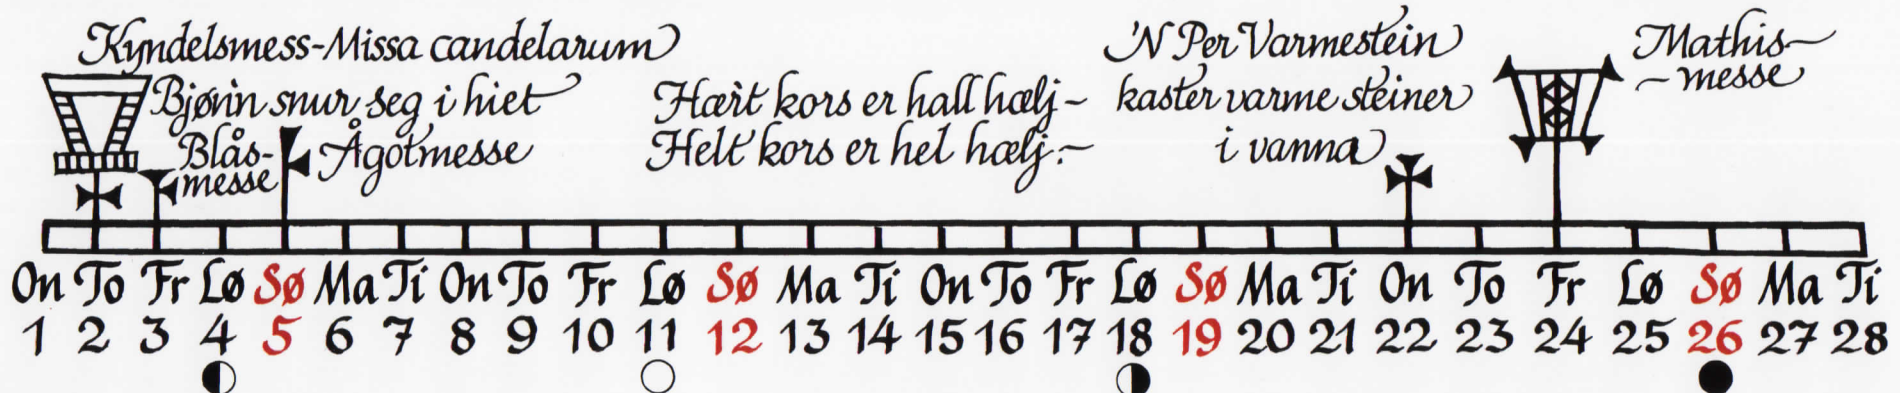 Kyndelsmess-Missa candelarum
Bjønn snur seg i hiet
Blås-
messe
Ågotmesse
Hært kors er hall hælj~
Helt kors er hel hælj:~
'N Per Varmestein
kaster varme steiner
i vanna
Mathis~
~messe
On To Fr Lø Sø Ma Ti On To Fr Lø Sø Ma Ti On To Fr Lø Sø Ma Ti On To Fr Lø Sø Ma Ti
1 2 3 4 5 6 7 8 9 10 11 12 13 14 15 16 17 18 19 20 21 22 23 24 25 26 27 28